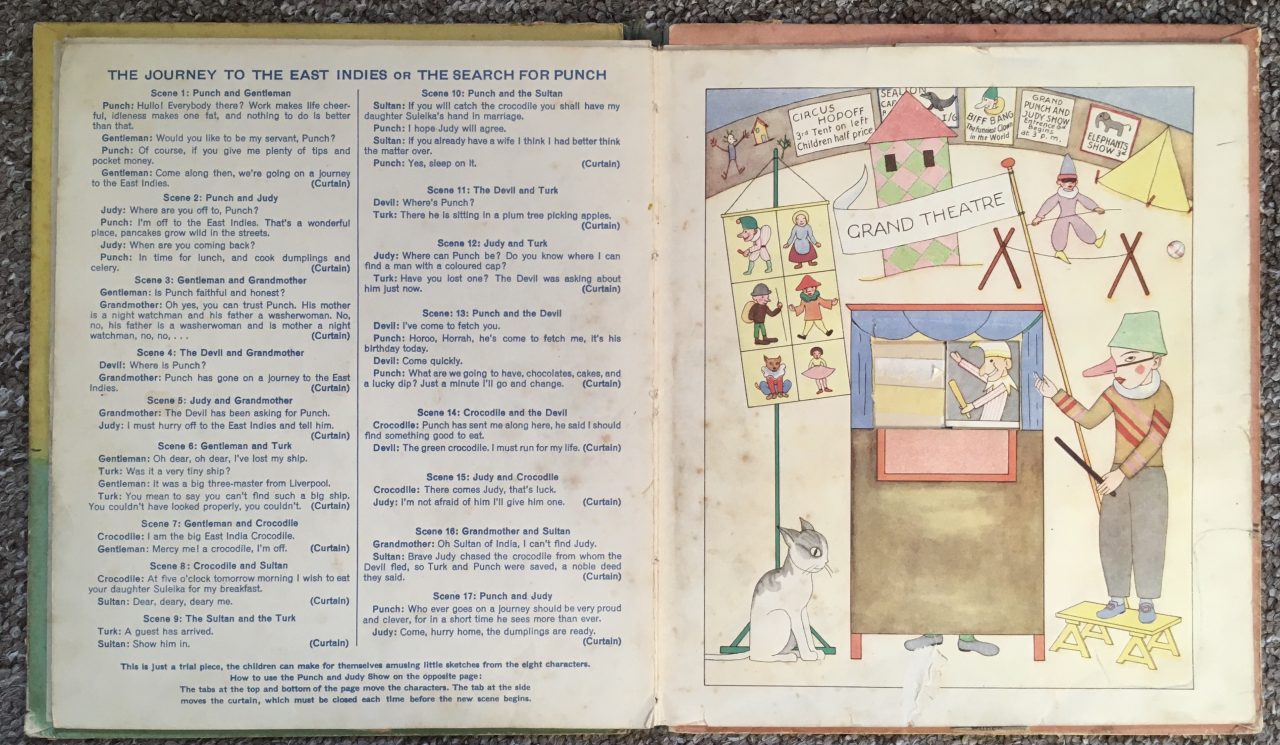 THE JOURNEY TO THE EAST INDIES OR THE SEARCH FOR PUNCH
Scene 1: Punch and Gentleman
Punch: Hullo! Everybody there? Work makes life cheer-
ful, idleness makes one fat, and nothing to do is better
than that.
Gentleman: Would you like to be my servant, Punch?
Punch: Of course, if you give me plenty of tips and
pocket money.
Gentleman: Come along then, we're going on a journey
to the East Indies. (Curtain)
Scene 2: Punch and Judy
Judy: Where are you off to, Punch?
Punch: I'm off to the East Indies. That's a wonderful
place, pancakes grow wild in the streets.
Judy: When are you coming back?
Punch: In time for lunch, and cook dumplings and
celery. (Curtain)
Scene 3: Gentleman and Grandmother
Gentleman: Is Punch faithful and honest?
Grandmother: Oh yes, you can trust Punch. His mother
is a night watchman and his father a washerwoman. No,
no, his father is a washerwoman and is mother a night
watchman, no, no, . . . (Curtain)
Scene 4: The Devil and Grandmother
Devil: Where is Punch?
Grandmother: Punch has gone on a journey to the East
Indies. (Curtain)
Scene 5: Judy and Grandmother
Grandmother: The Devil has been asking for Punch.
Judy: I must hurry off to the East Indies and tell him.
(Curtain)
Scene 6: Gentleman and Turk
Gentleman: Oh dear, oh dear, I've lost my ship.
Turk: Was it a very tiny ship?
Gentleman: It was a big three-master from Liverpool.
Turk: You mean to say you can't find such a big ship.
You couldn't have looked properly, you couldn't. (Curtain)
Scene 7: Gentleman and Crocodile
Crocodile: I am the big East India Crocodile.
Gentleman: Mercy me! a crocodile, I'm off. (Curtain)
Scene 8: Crocodile and Sultan
Crocodile: At five o'clock tomorrow morning I wish to eat
your daughter Suleika for my breakfast.
Sultan: Dear, deary, deary me. (Curtain)
Scene 9: The Sultan and the Turk
Turk: A guest has arrived.
Sultan: Show him in. (Curtain)
Scene 10: Punch and the Sultan
Sultan: If you will catch the crocodile you shall have my
daughter Suleika's hand in marriage.
Punch: I hope Judy will agree.
Sultan: If you already have a wife I think I had better think
the matter over.
Punch: Yes, sleep on it. (Curtain)
Scene 11: The Devil and Turk
Devil: Where's Punch?
Turk: There he is sitting in a plum tree picking apples.
(Curtain)
Scene 12: Judy and Turk
Judy: Where can Punch be? Do you know where I can
find a man with a coloured cap?
Turk: Have you lost one? The Devil was asking about
him just now. (Curtain)
Scene: 13: Punch and the Devil
Devil: I've come to fetch you.
Punch: Horoo, Horrah, he's come to fetch me, it's his
birthday today.
Devil: Come quickly.
Punch: What are we going to have, chocolates, cakes, and
a lucky dip? Just a minute I'll go and change. (Curtain)
Scene 14: Crocodile and the Devil
Crocodile: Punch has sent me along here, he said I should
find something good to eat.
Devil: The green crocodile. I must run for my life. (Curtain)
Scene 15: Judy and Crocodile
Crocodile: There comes Judy, that's luck.
Judy: I'm not afraid of him I'll give him one. (Curtain)
Scene 16: Grandmother and Sultan
Grandmother: Oh Sultan of India, I can't find Judy.
Sultan: Brave Judy chased the crocodile from whom the
Devil fled, so Turk and Punch were saved, a noble deed
they said. (Curtain)
Scene 17: Punch and Judy
Punch: Who ever goes on a journey should be very proud
and clever, for in a short time he sees more than ever.
Judy: Come, hurry home, the dumplings are ready.
(Curtain)
This is just a trial piece, the children can make for themselves amusing little sketches from the eight characters.
How to use the Punch and Judy Show on the opposite page:
The tabs at the top and bottom of the page move the characters. The tab at the side
moves the curtain, which must be closed each time before the new scene begins.
CIRCUS
HOPOFF
3rd Tent on left
Children half price
SEALION
1/6
BIFF BANG
The Funniest Clown
in the World
GRAND
PUNCH AND
JUDY SHOW
Entrance 6d
Begins
at 3 p.m.
ELEPHANTS
SHOW 3d
GRAND THEATRE